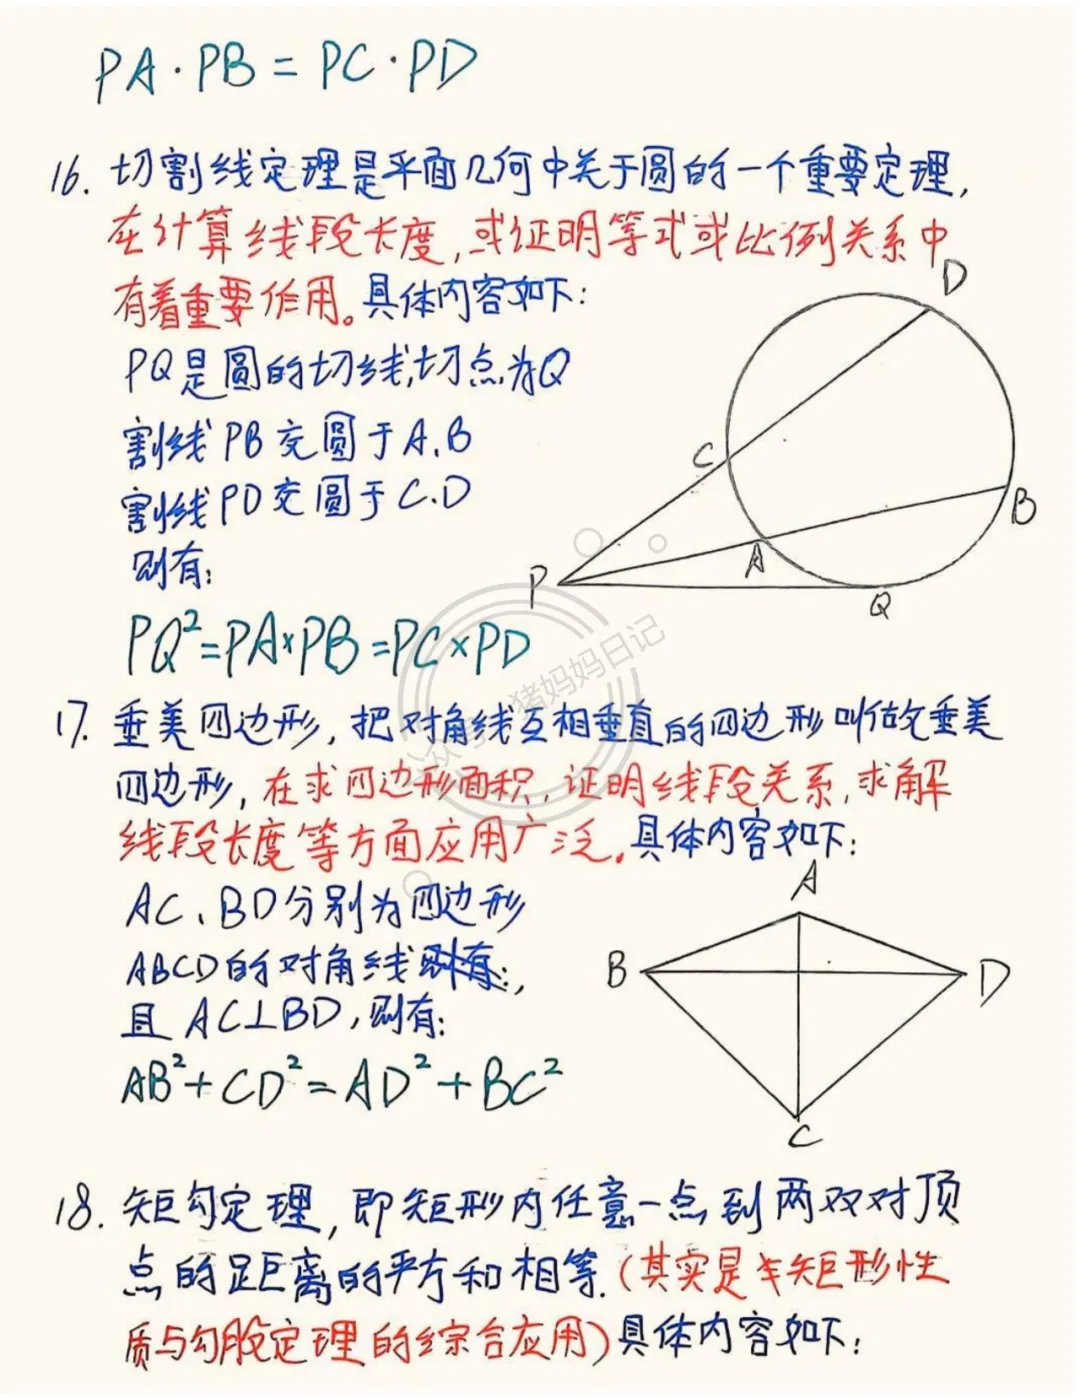 PA·PB=PC·PD
16. 切割线定理是平面几何中关于圆的一个重要定理,
在计算线段长度,或证明等式或比例关系中
有着重要作用。具体内容如下:
D
PQ是圆的切线,切点为Q
割线PB交圆于A.B
C
割线PD交圆于C.D
B
则有:
A
P
Q
PQ²=PA×PB=PC×PD
公众号·猪妈妈日记
17. 垂美四边形,把对角线互相垂直的四边形叫做垂美
四边形,在求四边形面积,证明线段关系,求解
线段长度等方面应用广泛.具体内容如下:
A
AC、BD分别为四边形
ABCD的对角线则有:,
B
D
且AC⊥BD,则有:
AB²+CD²=AD²+BC²
C
18. 矩勾定理,即矩形内任意一点到两双对顶
点的距离的平方和相等.(其实是矩形性
质与勾股定理的综合应用)具体内容如下: